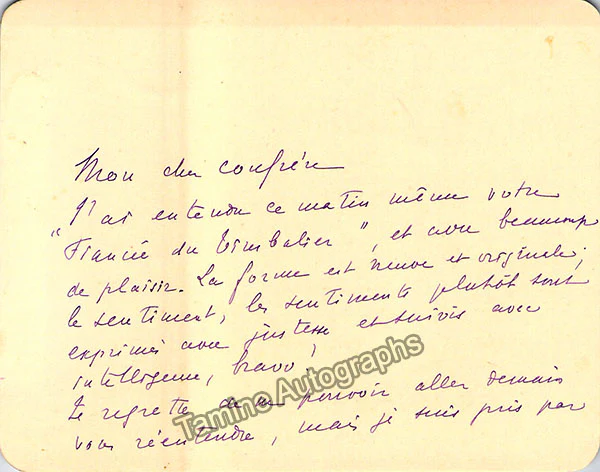 Mon cher confrère
J'ai entendu ce matin même votre
"Fiancée du Timbalier", et avec beaucoup
de plaisir. La forme est neuve et originale;
le sentiment, les sentiments plutôt sont
exprimés avec justesse et suivis avec
intelligence, bravo!
Je regrette de ne pouvoir aller demain
vous réentendre, mais je suis pris par
Tamino Autographs